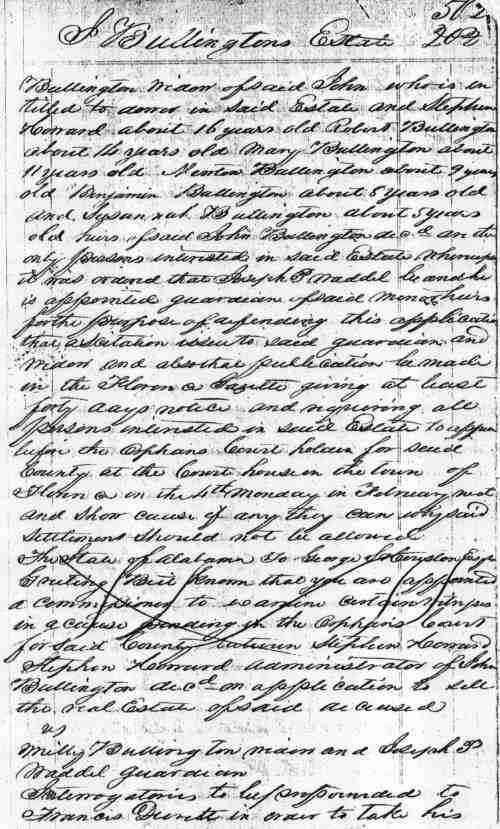 502
J Bullingtons Estate 202
Bullington widow of said John who is en
titled to dower in said Estate and Stephen
Howard about 16 years old Robert Bullington
about 14 years old Mary Bullington about
11 years old Newton Bullington about 9 years
old Benjamin Bullington about 8 years old
and Susannah Bullington about 5 years
old heirs of said John Bullington decd are the
only persons interested in said Estate whereup
it was ordered that Joseph P Waddel be and he
is appointed guardian of said minor heirs
for the purpose of defending this application
that a citation issue to said guardian and
widow and also that publication be made
in the Florence Gazette giving at least
forty days notice and requiring all
persons interested in said Estate to appear
before the Orphans Court holden for said
County at the Court house in the town of
Florence on the 4th Monday in February next
and show cause if any they can why said
settlement should not be allowed
The State of Alabama To George
Greeting Be it known that you are appointed
a commissioner to examine certain witness
in a cause pending in the Orphans Court
for said County between Stephen Howard
Stephen Howard administrator of John
Bullington decd on application to sell
the real Estate of said deceased
vs
Milly Bullington widow and Joseph P
Waddel guardian
Interrogatories to be propounded to
Francis Durett in order to take his